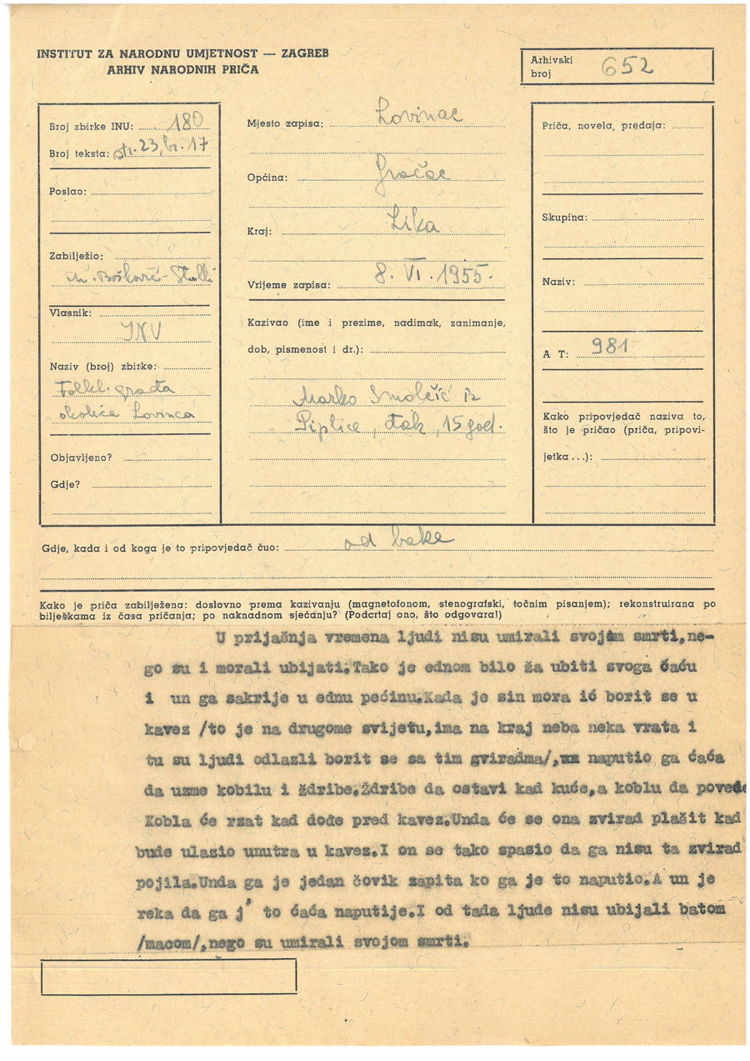 INSTITUT ZA NARODNU UMJETNOST — ZAGREB
ARHIV NARODNIH PRIČA
Arhivski
broj 652
Broj zbirke INU: 180
Broj teksta: str. 23, br. 17
Poslao:
Zabilježio:
M. Bošković-Stulli
Vlasnik:
INU
Naziv (broj) zbirke:
Folkl. građa
okolice Lovinca
Objavljeno?
Gdje?
Mjesto zapisa: Lovinac
Općina: Gračac
Kraj: Lika
Vrijeme zapisa: 8. VI. 1955.
Kazivao (ime i prezime, nadimak, zanimanje,
dob, pismenost i dr.):
Marko Smolčić iz
Piplice, đak, 15 god.
Priča, novela, predaja:
Skupina:
Naziv:
A T: 981
Kako pripovjedač naziva to,
što je pričao (priča, pripovi-
jetka...):
Gdje, kada i od koga je to pripovjedač čuo: od bake
Kako je priča zabilježena: doslovno prema kazivanju (magnetofonom, stenografski, točnim pisanjem); rekonstruirana po
bilješkama iz časa pričanja; po naknadnom sjećanju? (Podcrtaj ono, što odgovara!)
U prijašnja vremena ljudi nisu umirali svojom smrti,ne-
go su i morali ubijati.Tako je ednom bilo ža ubiti svoga ćaću
i un ga sakrije u ednu pećinu.Kada je sin mora ić borit se u
kavez /to je na drugome svijetu,ima na kraj neba neka vrata i
tu su ljudi odlazli borit se sa tim zviradma/, naputio ga ćaća
da uzme kobilu i ždribe.Ždribe da ostavi kad kuće,a koblu da povede
Kobla će rzat kad dođe pred kavez.Unda će se ona zvirad plašit kad
bude ulazio unutra u kavez.I on se tako spasio da ga nisu ta zvirad
pojila.Unda ga je jedan čovik zapita ko ga je to naputio.A un je
reka da ga j' to ćaća naputije.I od tada ljude nisu ubijali batom
/macom/,nego su umirali svojom smrti.